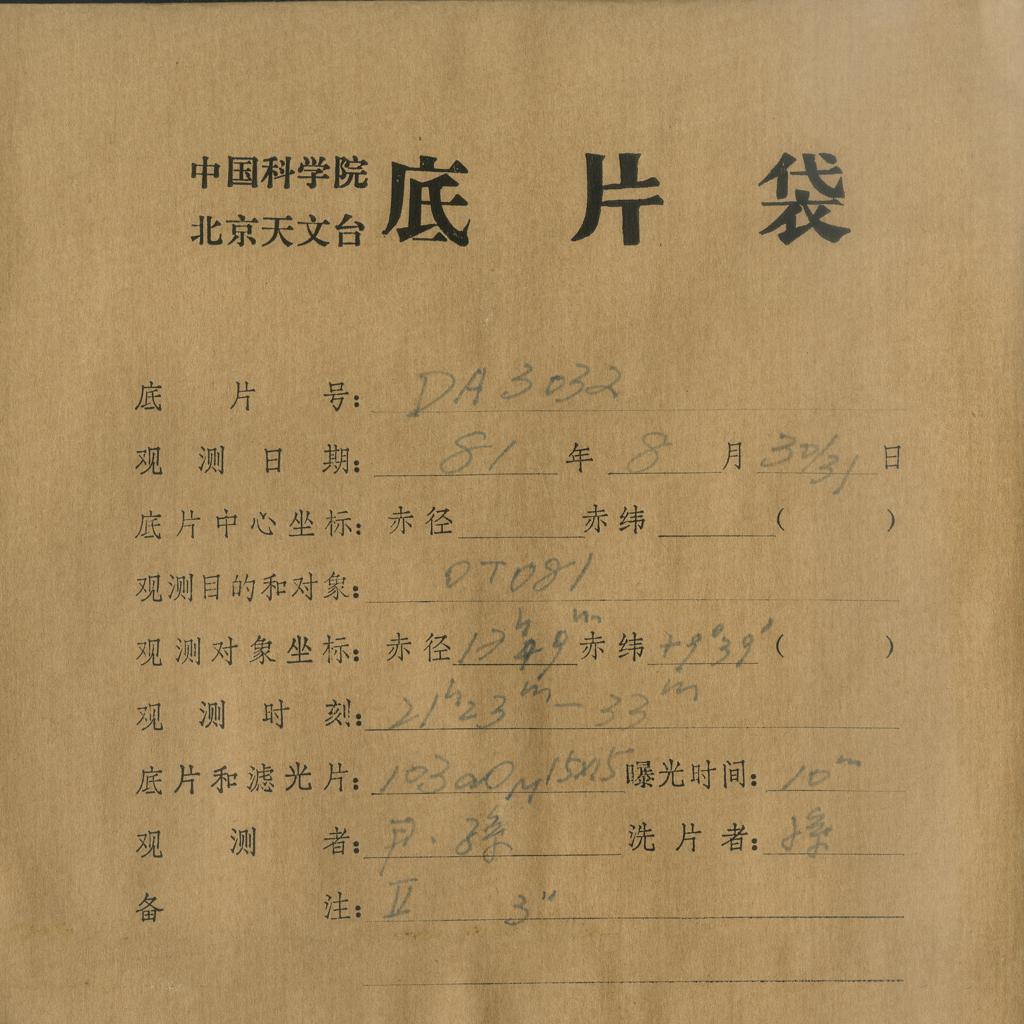 中国科学院
北京天文台
底片袋
底片号: DA3032
观测日期: 81年8月30/31日
底片中心坐标: 赤径 赤纬 ( )
观测目的和对象: OT081
观测对象坐标: 赤径17h49m赤纬+9°39′( )
观测时刻: 21h23m—33m
底片和滤光片: 103aO 15x15 曝光时间: 10m
观测者: 尹·孙 洗片者: 孙
备注: II 3″